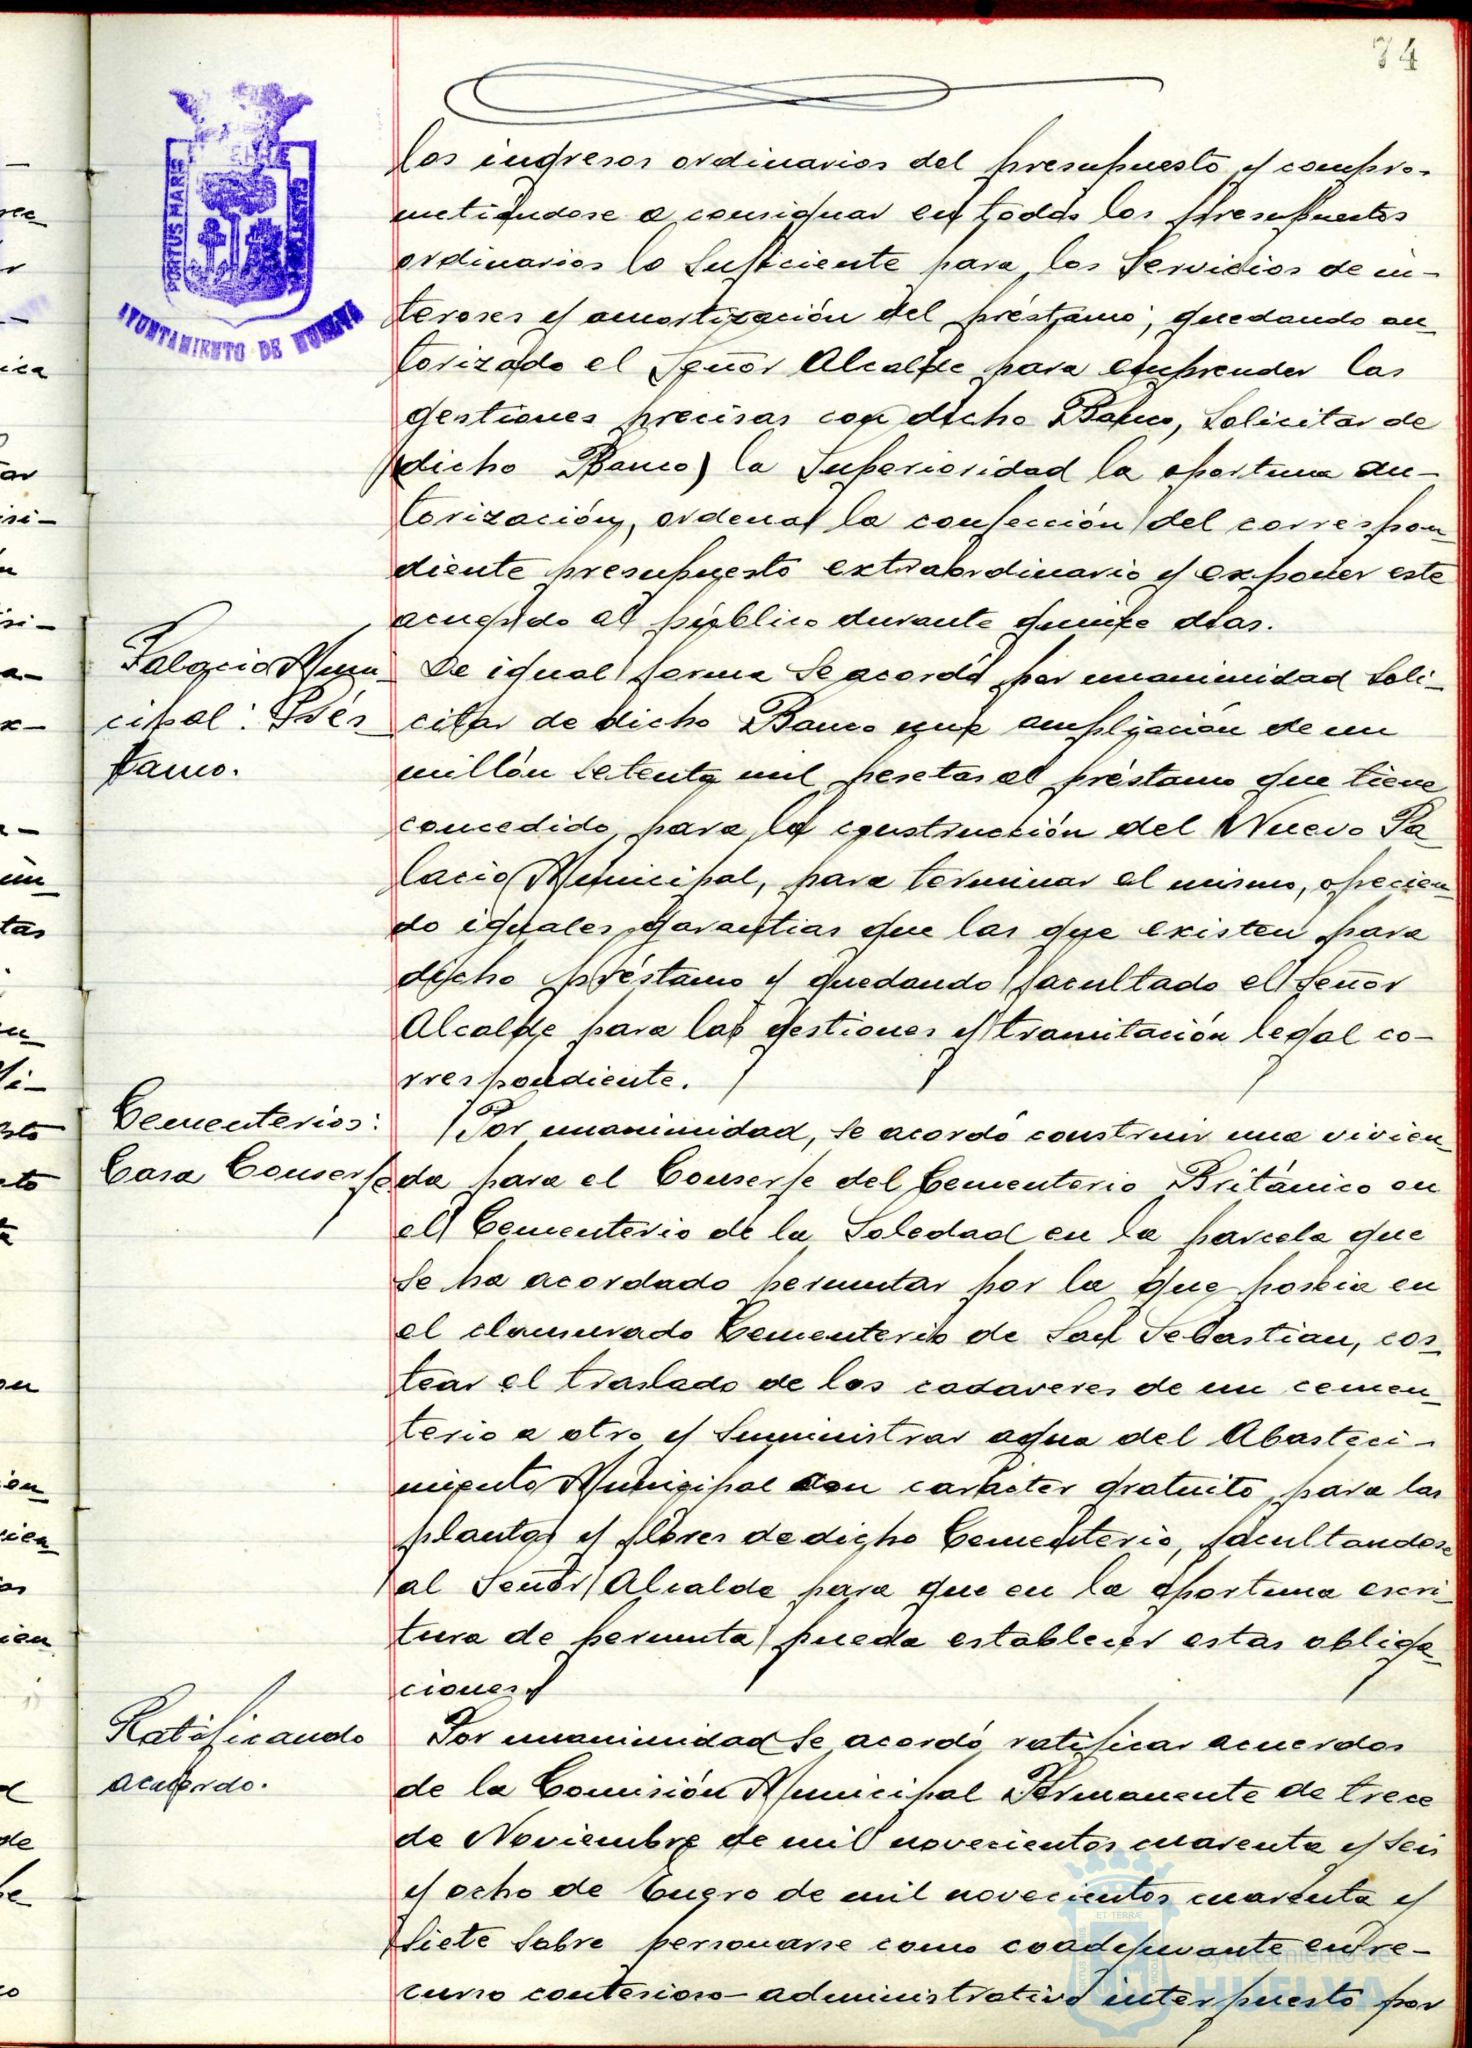 74
PORTUS MARIS ET TERRÆ CUSTODIA
AYUNTAMIENTO DE HUELVA
los ingresos ordinarios del presupuesto y compro-
metiéndose a consignar en todos los presupuestos
ordinarios lo suficiente para los Servicios de in-
tereses y amortización del préstamo, quedando au-
torizado el Señor Alcalde para emprender las
gestiones precisas con dicho Banco, Solicitar de
(dicho Banco) la Superioridad la oportuna au-
torización, ordenar la confección del correspon-
diente presupuesto extraordinario y exponer este
acuerdo al público durante quince días.
Palacio Muni-
cipal: Prés-
tamo.
De igual forma se acordó por unanimidad Soli-
citar de dicho Banco una ampliación de un
millón setenta mil pesetas al préstamo que tiene
concedido para la construcción del Nuevo Pa-
lacio Municipal, para terminar el mismo, ofrecien-
do iguales garantias que las que existen para
dicho préstamo y quedando facultado el Señor
Alcalde para las gestiones y tramitación legal co-
rrespondiente.
Cementerios:
Casa Conserje
Por unanimidad, se acordó construir una vivien-
da para el Conserje del Cementerio Británico en
el Cementerio de la Soledad en la parcela que
se ha acordado permutar por la que poseia en
el clausurado Cementerio de San Sebastian, cos-
tear el traslado de los cadaveres de un cemen-
terio a otro y suministrar agua del Abasteci-
miento Municipal con carácter gratuito para las
plantas y flores de dicho Cementerio, facultandose
al Señor Alcalde para que en la oportuna escri-
tura de permuta pueda establecer estas obliga-
ciones.
Ratificando
acuerdo.
Por unanimidad se acordó ratificar acuerdos
de la Comisión Municipal Permanente de trece
de Noviembre de mil novecientos cuarenta y seis
y ocho de Enero de mil novecientos cuarenta y
siete sobre personarse como coadyuvante en re-
curso contencioso-administrativo interpuesto por
Ayuntamiento de
HUELVA